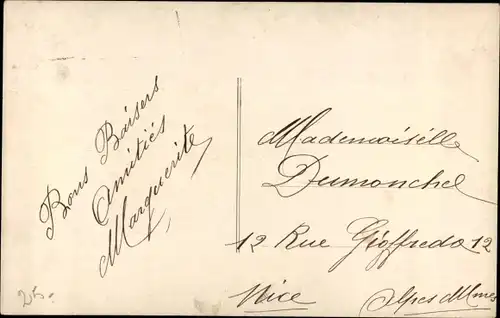 Bons Baisers
Amitiés
Marguerite
Mademoiselle
Dumonchel
12 Rue Gioffredo 12
Nice
Alpes Mmes